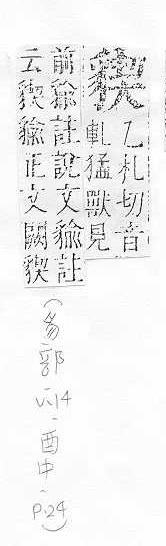 䝟
乙札切音
軋猛獸見
前貐註說文貐註
云䝟貐正文闕䝟
(豸部-V.14-酉中-P.24)